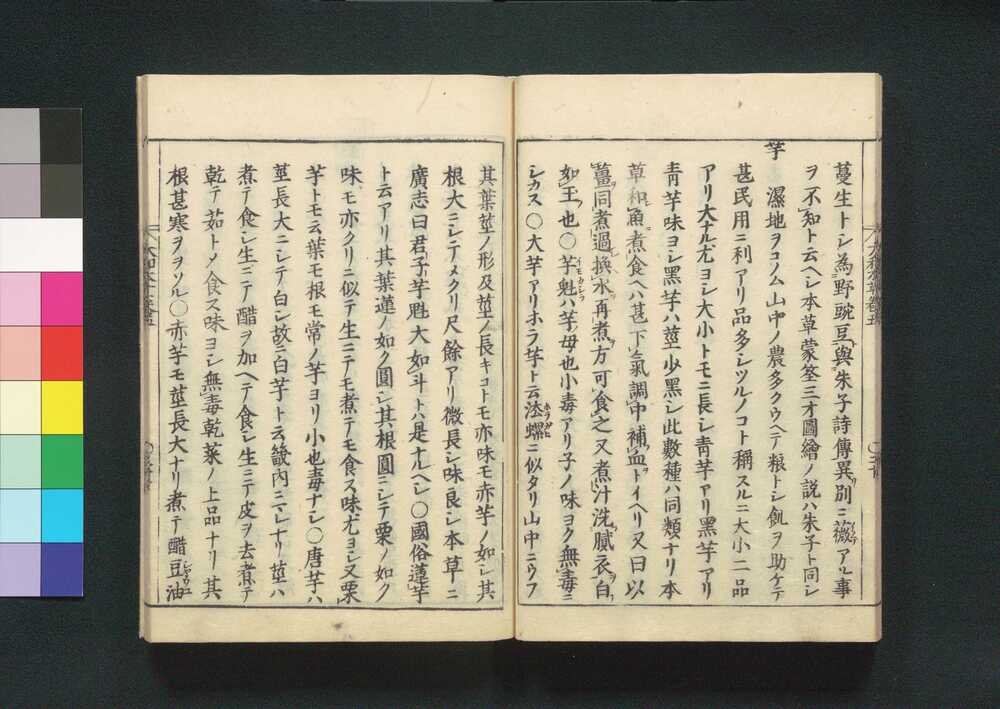 蔓生トシ為野豌豆與朱子詩傳異別ニ薇アル事
ヲ不知ト云ヘシ本草蒙筌三才圖繪ノ説ハ朱子ト同シ
芋
濕地ヲコノム山中ノ農多クウヘテ粮トシ飢ヲ助ケテ
甚民用ニ利アリ品多シツルノコト稱スルニ大小二品
アリ大ナル尤ヨシ大小トモニ長シ青芋アリ黒芋アリ
青芋味ヨシ黒芋ハ莖少黒シ此數種ハ同類ナリ本
草和魚煮食ヘハ甚下氣調中補血トイヘリ又曰以
薑同煮過換水再煮方可食之又煮汁洗膩衣白
如玉也○芋魁ハ芋母也小毒アリ子ノ味ヨク無毒ニ
シカス○大芋アリホラ芋ト云法螺ニ似タリ山中ニウフ
其葉莖ノ形及莖ノ長キコトモ亦味モ赤芋ノ如シ其
根大ニシテメクリ尺餘アリ微長シ味良シ本草ニ
廣志曰君子芋魁大如斗トハ是ナルヘシ○國俗蓮芋
ト云アリ其葉蓮ノ如ク圓シ其根圓ニシテ栗ノ如ク
味モ亦クリニ似テ生ニテモ煮テモ食ス味尤ヨシ又栗
芋トモ云葉モ根モ常ノ芋ヨリ小也毒ナシ○唐芋ハ
莖長大ニシテ白シ故ニ白芋ト云畿内ニマレナリ莖ハ
煮テ食シ生ニテ醋ヲ加ヘテ食シ生ニテ皮ヲ去煮テ
乾テ茹トメ食ス味ヨシ無毒乾菜ノ上品ナリ其
根甚寒ヲヲソル○赤芋モ莖長大ナリ煮テ醋豆油